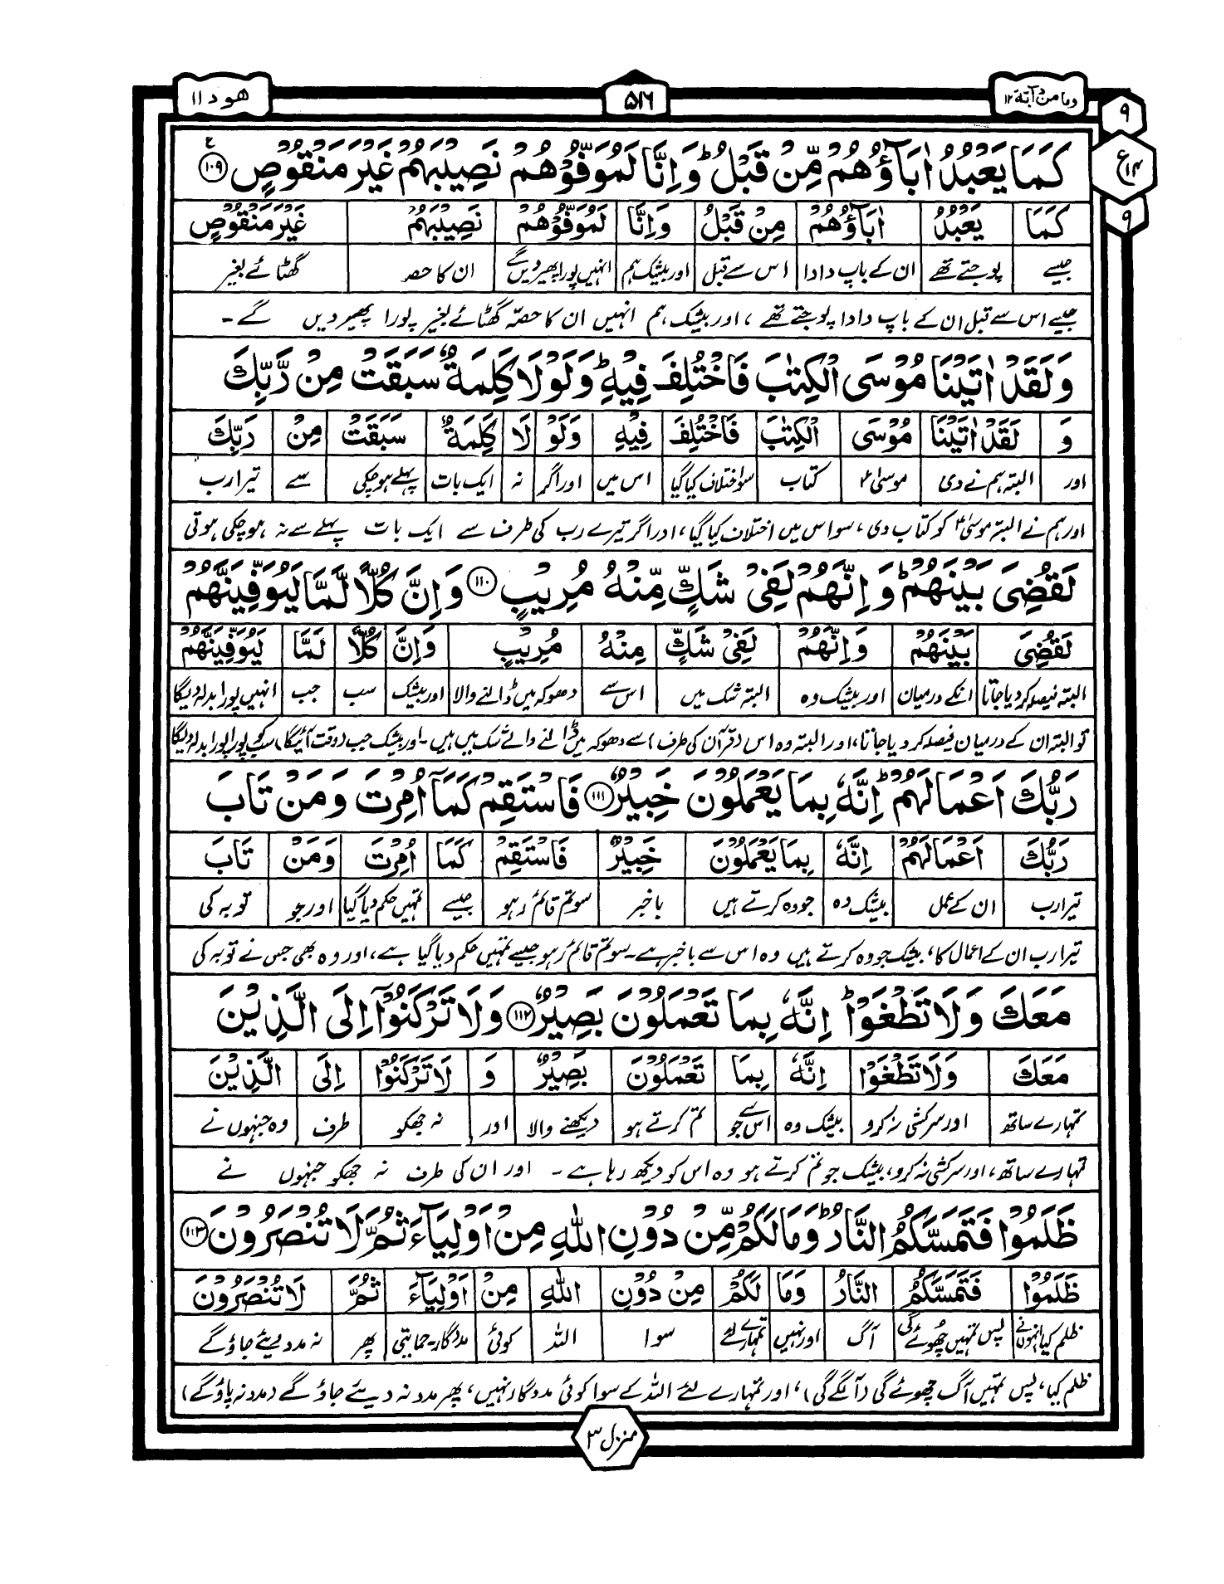 وما من دآبة ١٢
٥١٦
هود ١١
٩
ع
١٤
٩
كَمَا يَعْبُدُ اٰبَآؤُهُمْ مِّنْ قَبْلُ ؕ وَاِنَّا لَمُوَفُّوْهُمْ نَصِيْبَهُمْ غَيْرَ مَنْقُوْصٍ ع ١٠٩
كَمَا يَعْبُدُ اٰبَآؤُهُمْ مِنْ قَبْلُ وَاِنَّا لَمُوَفُّوْهُمْ نَصِيْبَهُمْ غَيْرَ مَنْقُوْصٍ
جیسے پوجتے تھے ان کے باپ دادا اس سے قبل اور بیشک ہم انہیں پورا پھیر دیں گے ان کا حصہ گھٹائے بغیر
جیسے اس سے قبل ان کے باپ دادا پوجتے تھے، اور بیشک ہم انہیں ان کا حصّہ گھٹائے بغیر پورا پھیر دیں گے۔
وَلَقَدْ اٰتَيْنَا مُوْسَى الْكِتٰبَ فَاخْتُلِفَ فِيْهِ ؕ وَلَوْلَا كَلِمَةٌ سَبَقَتْ مِنْ رَّبِّكَ
وَ لَقَدْ اٰتَيْنَا مُوْسَى الْكِتٰبَ فَاخْتُلِفَ فِيْهِ وَلَوْ لَا كَلِمَةٌ سَبَقَتْ مِنْ رَبِّكَ
اور البتہ ہم نے دی موسیٰؑ کتاب سو اختلاف کیا گیا اس میں اور اگر نہ ایک بات پہلے ہو چکی سے تیرا رب
اور ہم نے البتہ موسیٰؑ کو کتاب دی، سو اس میں اختلاف کیا گیا، اور اگر تیرے رب کی طرف سے ایک بات پہلے سے نہ ہو چکی ہوتی
لَقُضِيَ بَيْنَهُمْ ؕ وَاِنَّهُمْ لَفِيْ شَكٍّ مِّنْهُ مُرِيْبٍ ١١٠ وَاِنَّ كُلًّا لَّمَّا لَيُوَفِّيَنَّهُمْ
لَقُضِيَ بَيْنَهُمْ وَاِنَّهُمْ لَفِيْ شَكٍّ مِنْهُ مُرِيْبٍ وَاِنَّ كُلًّا لَمَّا لَيُوَفِّيَنَّهُمْ
البتہ فیصلہ کر دیا جاتا انکے درمیان اور بیشک وہ البتہ شک میں اس سے دھوکہ میں ڈالنے والا اور بیشک سب جب انہیں پورا بدلہ دیگا
تو البتہ ان کے درمیان فیصلہ کر دیا جاتا، اور البتہ وہ اس (قرآن کی طرف) سے دھوکہ میں ڈالنے والے شک میں ہیں۔ اور بیشک جب (وقت آئیگا) سب کو پورا پورا بدلہ دیگا
رَبُّكَ اَعْمَالَهُمْ ؕ اِنَّهٗ بِمَا يَعْمَلُوْنَ خَبِيْرٌ ١١١ فَاسْتَقِمْ كَمَآ اُمِرْتَ وَمَنْ تَابَ
رَبُّكَ اَعْمَالَهُمْ اِنَّهٗ بِمَا يَعْمَلُوْنَ خَبِيْرٌ فَاسْتَقِمْ كَمَا اُمِرْتَ وَمَنْ تَابَ
تیرا رب ان کے عمل بیشک وہ جو وہ کرتے ہیں باخبر سو تم قائم رہو جیسے تمہیں حکم دیا گیا اور جو توبہ کی
تیرا رب ان کے اعمال کا، بیشک جو وہ کرتے ہیں وہ اس سے باخبر ہے۔ سو تم قائم رہو جیسے تمہیں حکم دیا گیا ہے، اور وہ بھی جس نے توبہ کی
مَعَكَ وَلَا تَطْغَوْا ؕ اِنَّهٗ بِمَا تَعْمَلُوْنَ بَصِيْرٌ ١١٢ وَلَا تَرْكَنُوْٓا اِلَى الَّذِيْنَ
مَعَكَ وَلَا تَطْغَوْا اِنَّهٗ بِمَا تَعْمَلُوْنَ بَصِيْرٌ وَ لَا تَرْكَنُوْٓا اِلَى الَّذِيْنَ
تمہارے ساتھ اور سرکشی نہ کرو بیشک وہ اس سے جو تم کرتے ہو دیکھنے والا اور نہ جھکو طرف وہ جنہوں نے
تمہارے ساتھ، اور سرکشی نہ کرو، بیشک جو تم کرتے ہو وہ اس کو دیکھ رہا ہے۔ اور ان کی طرف نہ جھکو جنہوں نے
ظَلَمُوْا فَتَمَسَّكُمُ النَّارُ ۙ وَمَا لَكُمْ مِّنْ دُوْنِ اللّٰهِ مِنْ اَوْلِيَآءَ ثُمَّ لَا تُنْصَرُوْنَ ١١٣
ظَلَمُوْا فَتَمَسَّكُمُ النَّارُ وَمَا لَكُمْ مِنْ دُوْنِ اللّٰهِ مِنْ اَوْلِيَآءَ ثُمَّ لَا تُنْصَرُوْنَ
ظلم کیا انہوں نے پس تمہیں چھوئے گی آگ اور نہیں تمہارے لئے سوا اللہ کوئی مددگار۔حمایتی پھر نہ مدد دیئے جاؤ گے
ظلم کیا، پس تمہیں آگ چھوئے گی (آ لگے گی)، اور تمہارے لئے اللہ کے سوا کوئی مددگار نہیں، پھر مدد نہ دیئے جاؤ گے (مدد نہ پاؤ گے)
منزل ٣